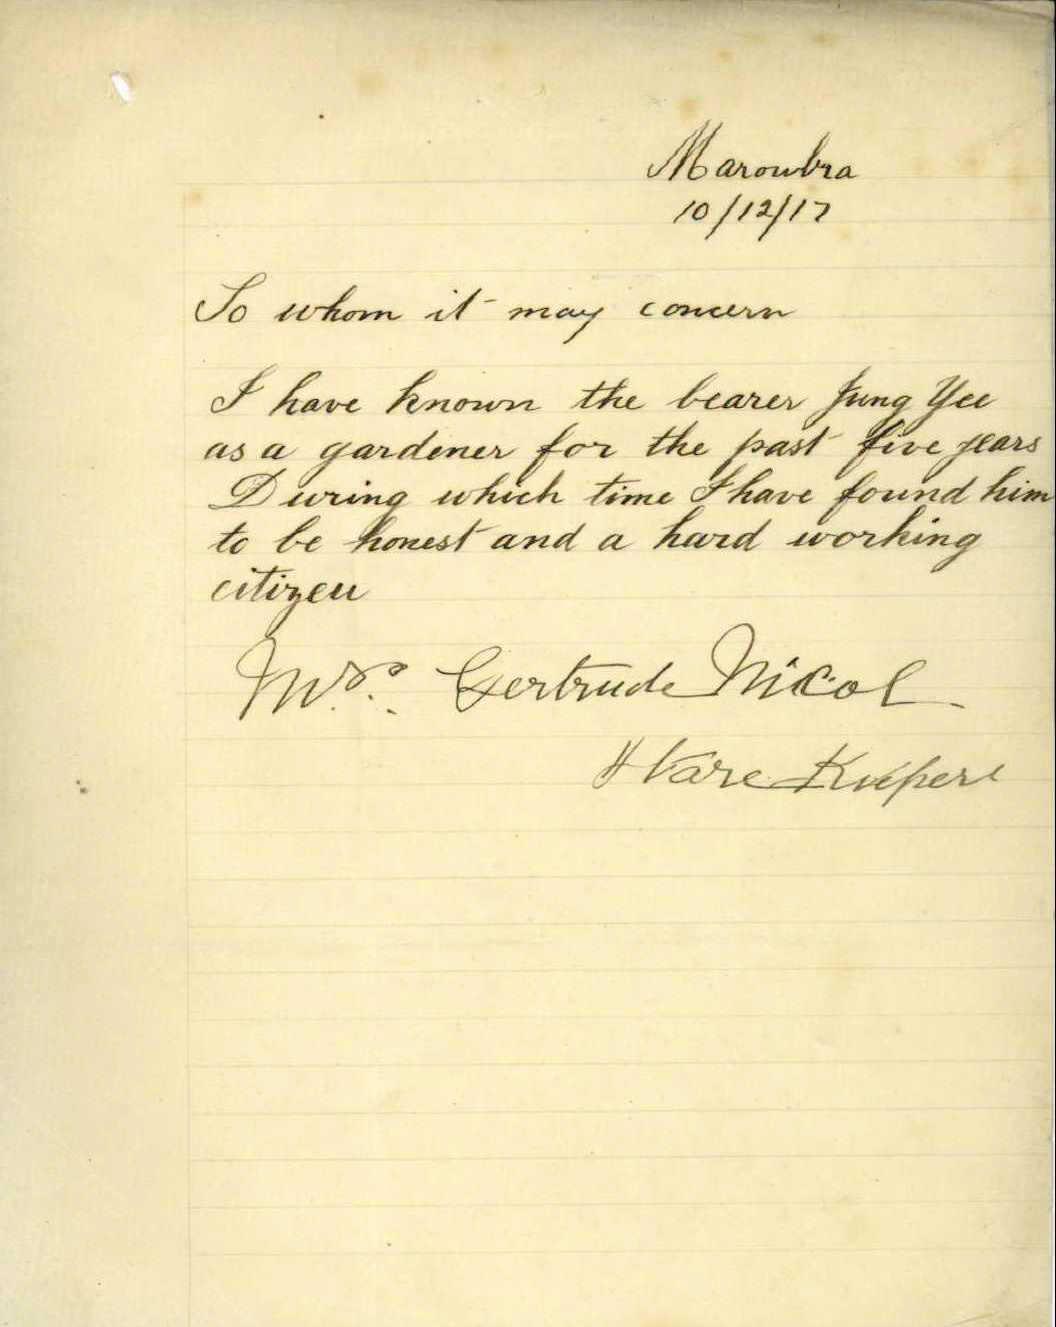 Marowbra
10/12/17
To whom it may concern
I have known the bearer Jung Yee
as a gardener for the past five years
During which time I have found him
to be honest and a hard working
citizen
Mrs. Gertrude Nicol
Store Keeper